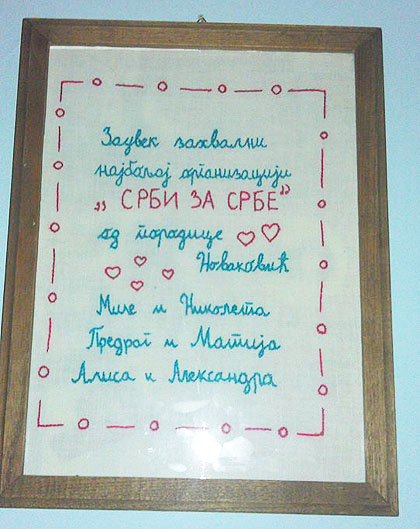 Заувек захвални
најбољој организацији
„ СРБИ ЗА СРБЕ”
од породице
Новаковић
Миле и Николета
Предраг и Матија
Алиса и Александра